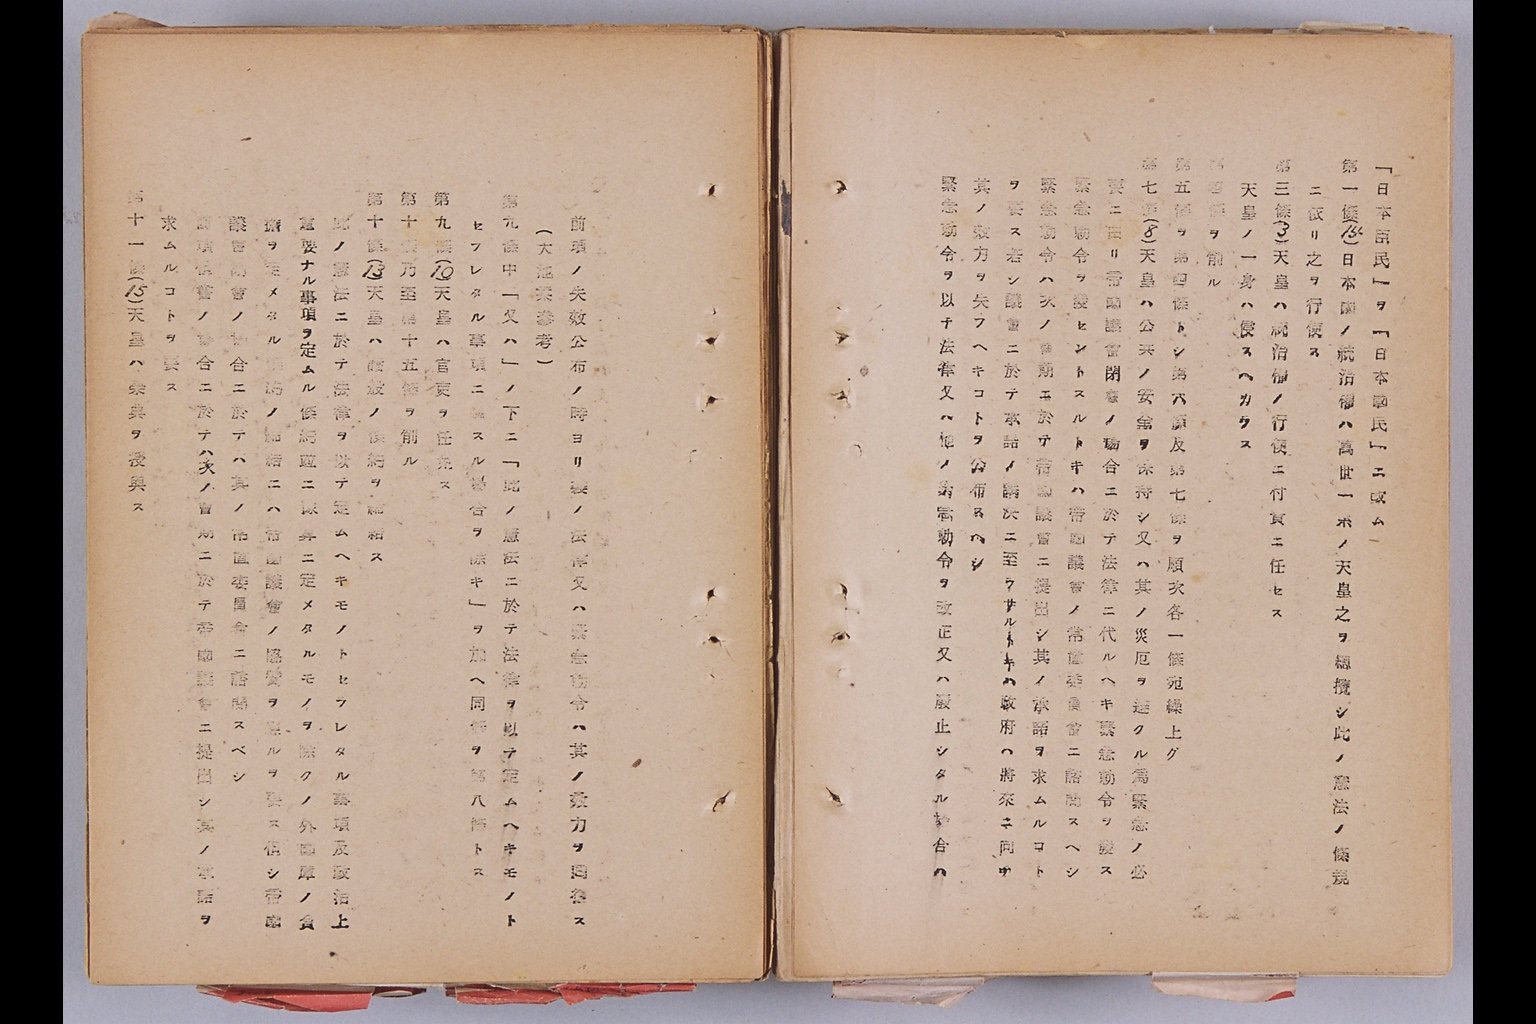 「日本臣民」ヲ「日本國民」ニ改ム
第一條(1)日本國ノ統治權ハ萬世一系ノ天皇之ヲ總攬シ此ノ憲法ノ條規
ニ依リ之ヲ行使ス
第三條(3)天皇ハ統治權ノ行使ニ付責ニ任セス
天皇ノ一身ハ侵スヘカラス
第四條ヲ削ル
第五條ヲ第四條トシ第六條及第七條ヲ順次各一條宛繰上グ
第七條(8)天皇ハ公共ノ安全ヲ保持シ又ハ其ノ災厄ヲ避クル爲緊急ノ必
要ニ由リ帝國議會閉會ノ場合ニ於テ法律ニ代ルヘキ緊急勅令ヲ發ス
緊急勅令ヲ發セントスルトキハ帝國議會ノ常置委員會ニ諮問スヘシ
緊急勅令ハ次ノ會期ニ於テ帝國議會ニ提出シ其ノ承諾ヲ求ムルコト
ヲ要ス若シ議會ニ於テ承諾ノ議決ニ至ラサルトキハ政府ハ將來ニ向テ
其ノ效力ヲ失フヘキコトヲ公布スヘシ
緊急勅令ヲ以テ法律又ハ他ノ緊急勅令ヲ改正又ハ廢止シタル場合ハ
前項ノ失效公布ノ時ヨリ ノ法律又ハ緊急勅令ハ其ノ效力ヲ囘復ス
(大池案參考)
第九條中「又ハ」ノ下ニ「此ノ憲法ニ於テ法律ヲ以テ定ムヘキモノト
セラレタル事項ニ スル場合ヲ除キ」ヲ加ヘ同條ヲ第八條トス
第九條(10)天皇ハ官吏ヲ任免ス
第十條乃至第十五條ヲ削ル
第十條(13)天皇ハ諸般ノ條約ヲ締結ス
此ノ憲法ニ於テ法律ヲ以テ定ムヘキモノトセラレタル事項及政治上
重要ナル事項ヲ定ムル條約竝ニ豫算ニ定メタルモノヲ除クノ外國庫ノ負
擔ヲ定メタル條約ノ締結ニハ帝國議會ノ協贊ヲ經ルヲ要ス但シ帝國
議會閉會ノ場合ニ於テハ其ノ常置委員會ニ諮問スベシ
前項但書ノ場合ニ於テハ次ノ會期ニ於テ帝國議會ニ提出シ其ノ承諾ヲ
求ムルコトヲ要ス
第十一條(15)天皇ハ榮典ヲ授與ス